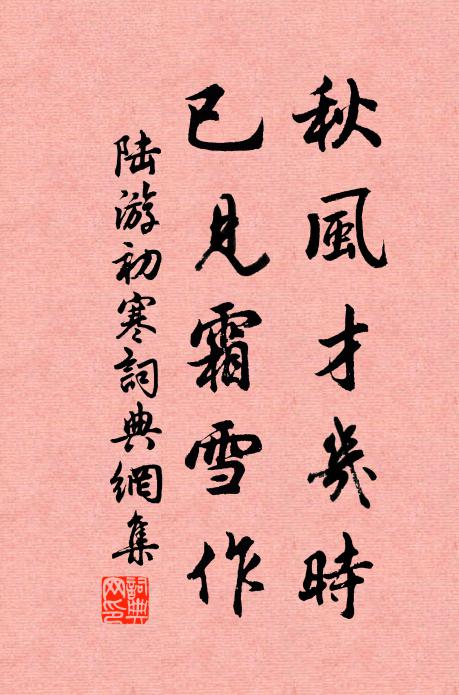 秋風才幾時
已見霜雪作
陸游初寒詞典網集
詞典網印